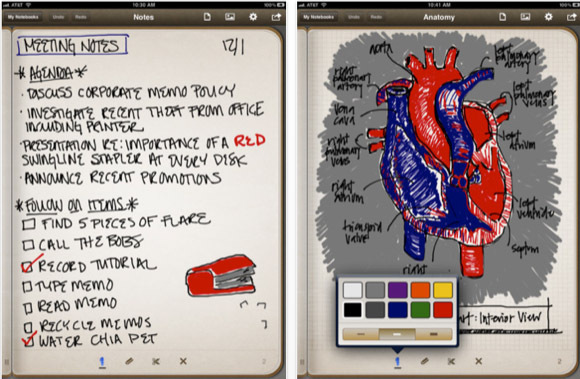 AT&T
10:30 AM
My Notebooks
Undo
Redo
Notes
MEETING NOTES
12/1
*AGENDA*
· DISCUSS CORPORATE MEMO POLICY
· INVESTIGATE RECENT THEFT FROM OFFICE
INCLUDING PRINTER
· PRESENTATION RE: IMPORTANCE OF A RED
SWINGLINE STAPLER AT EVERY DISK
· ANNOUNCE RECENT PROMOTIONS
*FOLLOW ON ITEMS*
FIND 5 PIECES OF FLARE
CALL THE BOBS
RECORD TUTORIAL
TYPE MEMO
READ MEMO
RECYCLE MEMOS
WATER CHIA PET
2
AT&T
10:41 AM
100%
My Notebooks
Undo
Redo
Anatomy
aorta
left
pulmonary
artery
right
pulmonary
artery
left
pulmonary
veins
vena
cava
right
pulmonary
veins
left
atrium
right
atrium
left
ventricle
valve
septum
right
art: Interior View
2